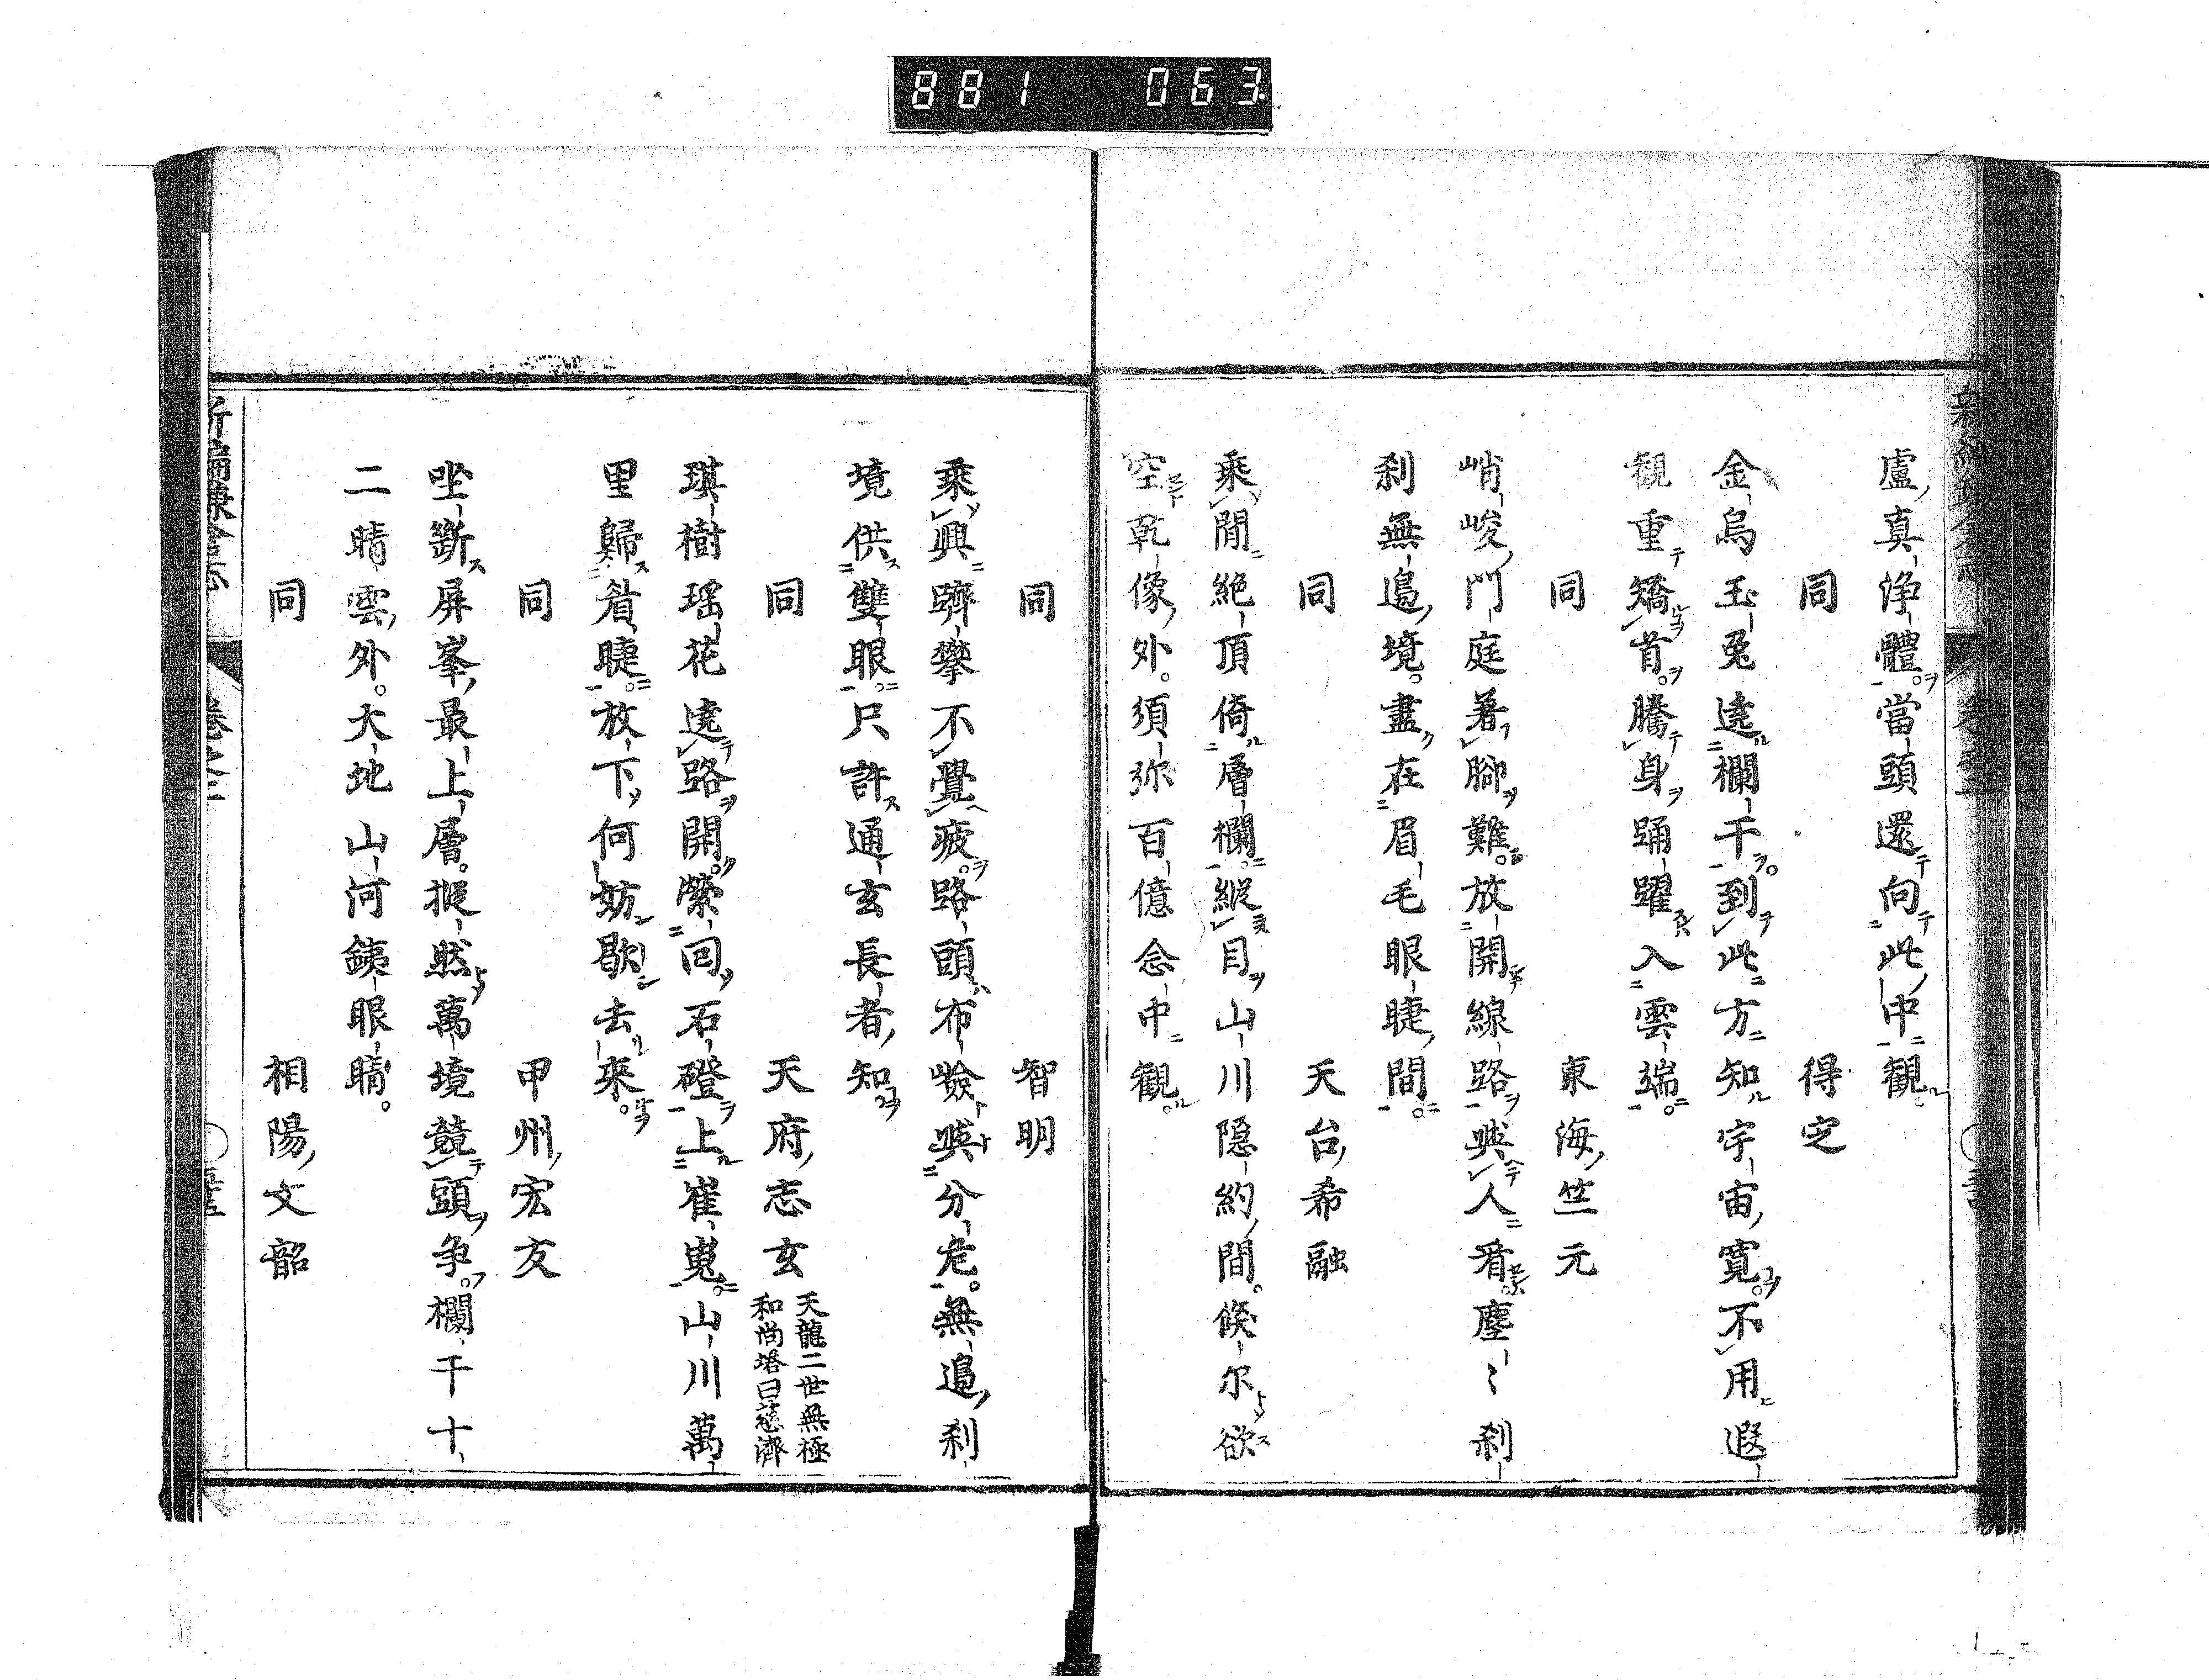 881 063
盧真浄體當頭還向此中觀
同 得之
金烏玉兎遶欄干到此方知宇宙寛不用遐
觀重矯首騰身踊躍入雲端
同 東海竺元
峭峻門庭著脚難放開線路與人看塵〻刹
刹無邉境盡在眉毛眼睫間
同 天台希融
乘間絶頂倚層欄縦目山川隠約間倐尓欲
空乾像外須弥百億念中觀
同 智明
乘興躋攀不覺疲路頭布嶮與分危無邉刹
境供雙眼只許通玄長者知
同 天府志玄 天龍二世無極
和尚塔曰慈濟
琪樹瑶花遶路開縈回石磴上崔嵬山川萬
里歸眉睫放下何妨歇去來
同 甲州宏友
坐斷屏峯最上層摐然萬境競頭争欄干十
二晴雲外大地山河銕眼睛
同 相陽文韶
新編鎌倉志 卷之三